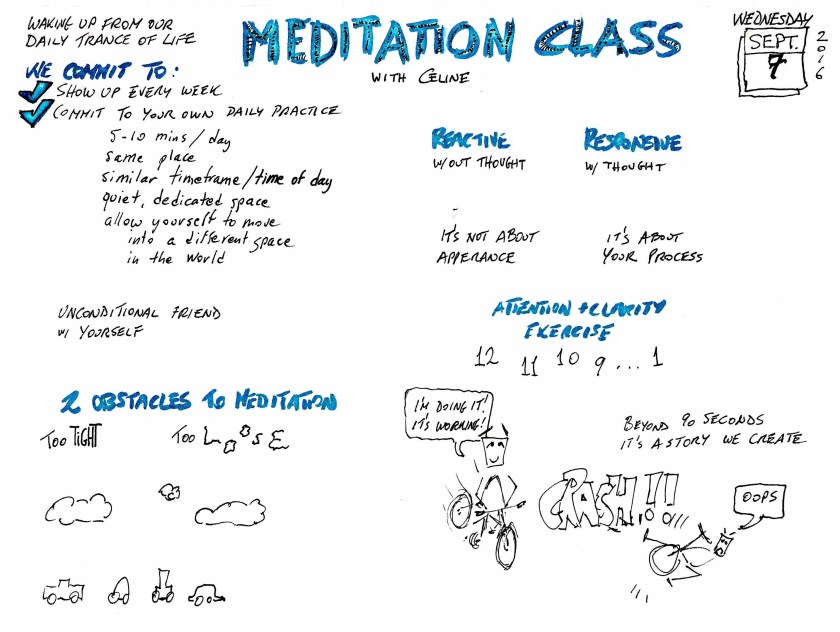 WAKING UP FROM OUR
DAILY TRANCE OF LIFE
MEDITATION CLASS
WITH CÉLINE
WEDNESDAY
SEPT.
7
2016
WE COMMIT TO:
SHOW UP EVERY WEEK
COMMIT TO YOUR OWN DAILY PRACTICE
5-10 mins/day
same place
similar timeframe/time of day
quiet, dedicated space
allow yourself to move
into a different space
in the world
UNCONDITIONAL FRIEND
w/ YOURSELF
REACTIVE
W/OUT THOUGHT
RESPONSIVE
W/ THOUGHT
IT'S NOT ABOUT
APPERANCE
IT'S ABOUT
YOUR PROCESS
ATTENTION + CLARITY
EXERCISE
12 11 10 9 ... 1
2 OBSTACLES TO MEDITATION
TOO TIGHT
TOO LOOSE
I'M DOING IT!
IT'S WORKING!
BEYOND 90 SECONDS
IT'S A STORY WE CREATE
CRASH!!!
OOPS